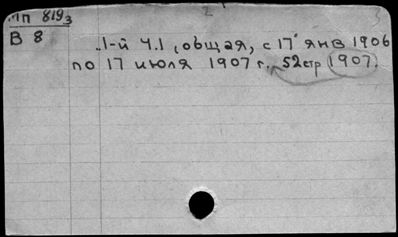 2
Мп 819з
В 8
1-й ч.1, общая, с 17 янв 1906
по 17 июля 1907 г. 52стр (1907).